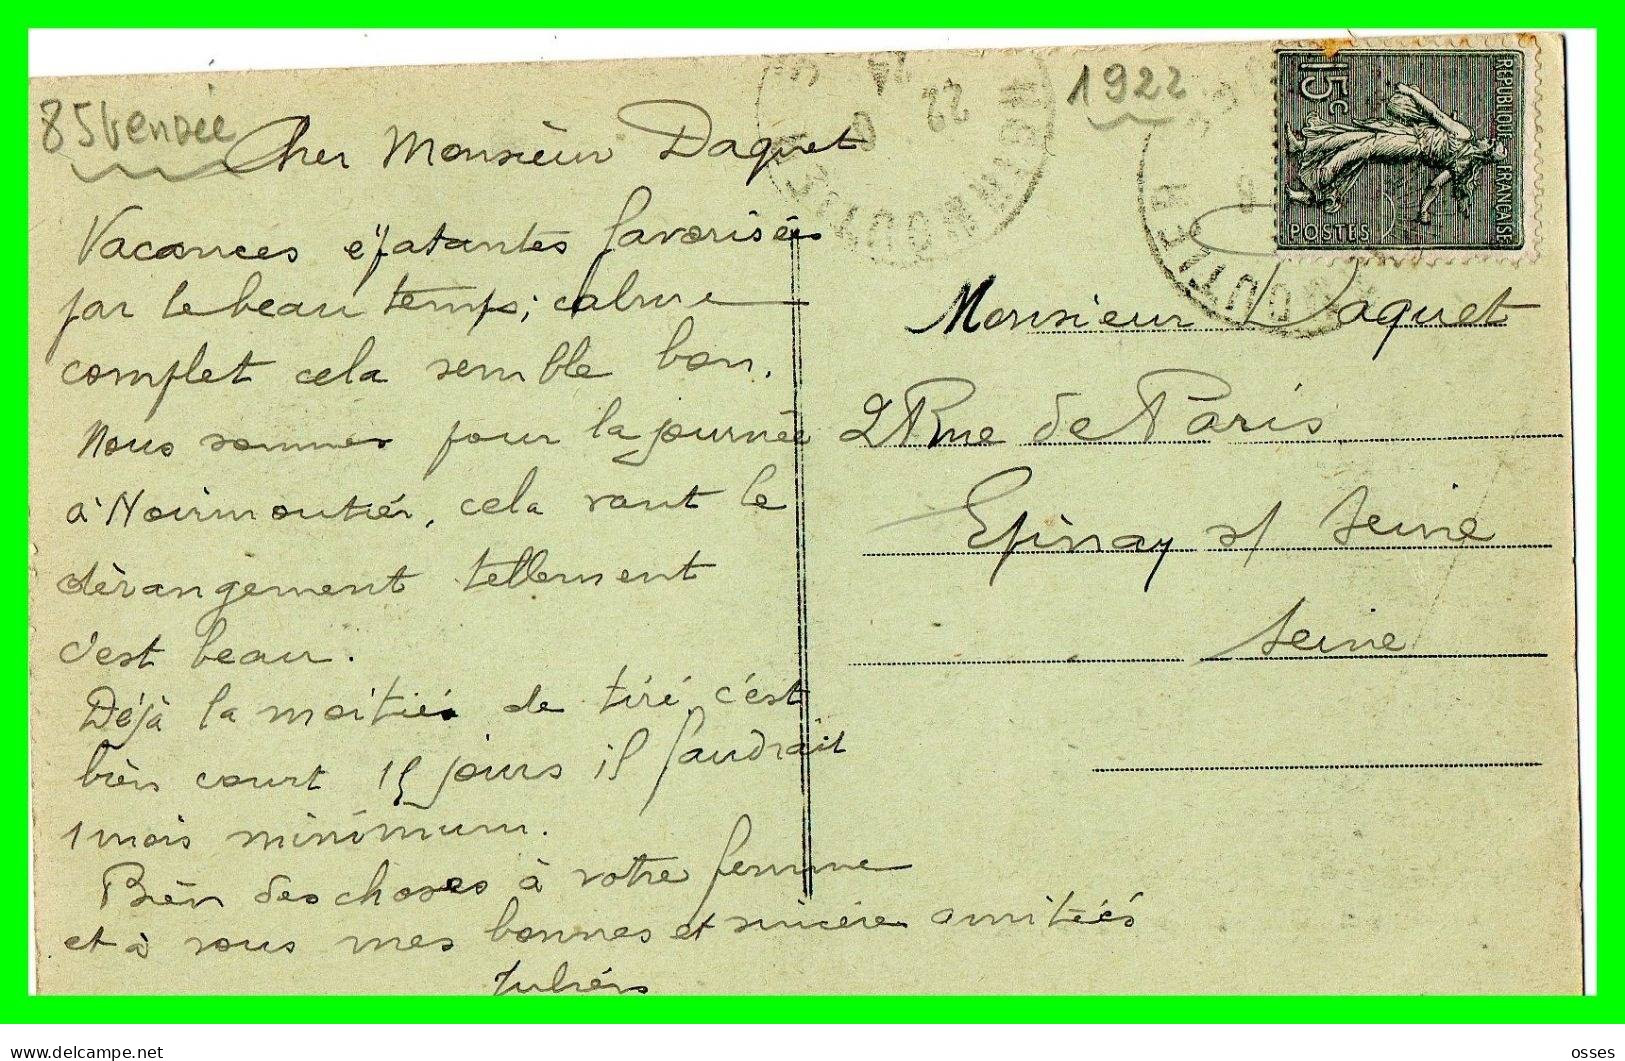 85 Vendée
1922
REPUBLIQUE FRANCAISE
15c
POSTES
22
NOIRMOUTIER
Cher Monsieur Daquet
Vacances épatantes favorisées
par le beau temps; calme
complet cela semble bon.
Nous sommes pour la journée
à Noirmoutier, cela vaut le
dérangement tellement
c'est beau.
Déjà la moitié de tiré, c'est
bien court 15 jours il faudrait
1 mois minimum.
Bien des choses à votre femme
et à vous mes bonnes et sincère amitiés
Julien
Monsieur Daquet
2 Rue de Paris
Epinay s/ Seine
Seine
delcampe.net
osses